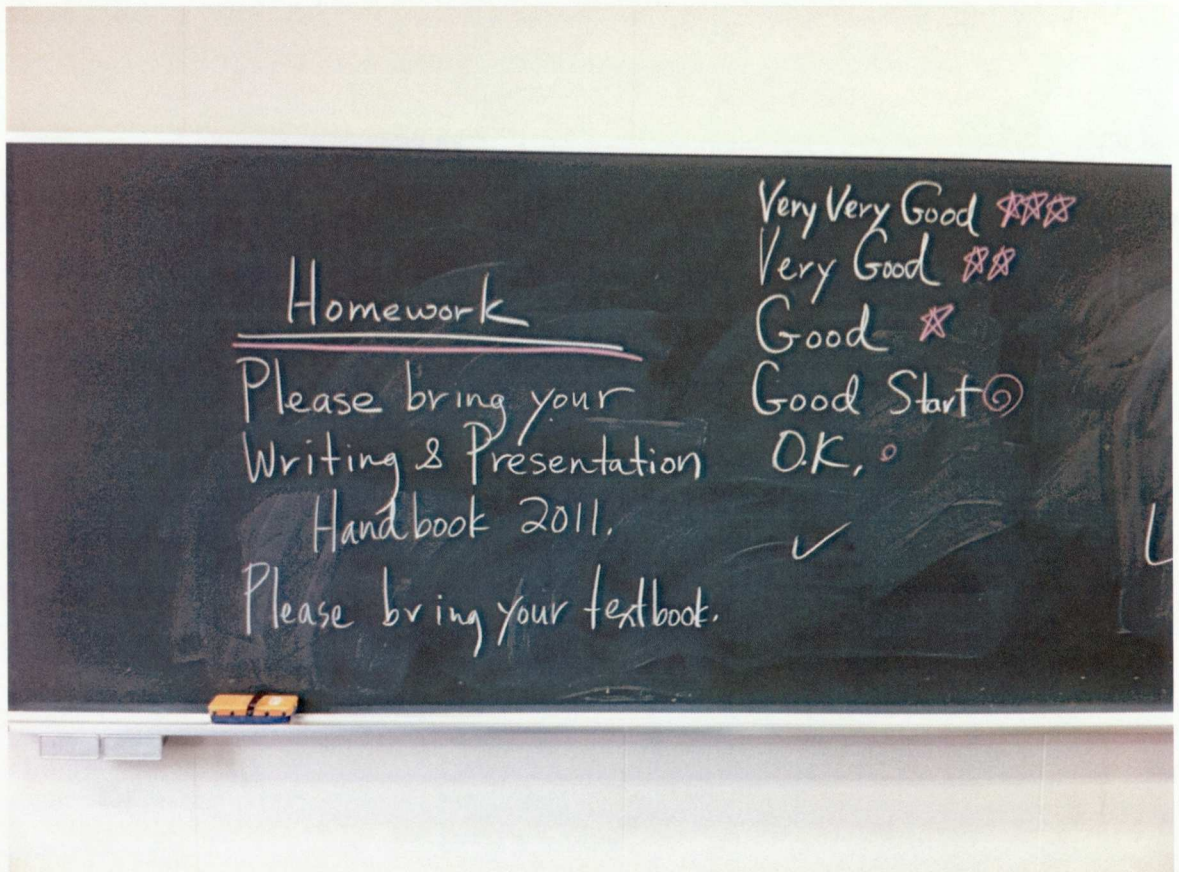 Homework
Please bring your
Writing & Presentation
Handbook 2011.
Please bring your textbook.
Very Very Good ☆☆☆
Very Good ☆☆
Good ☆
Good Start ◎
O.K. ○
✓